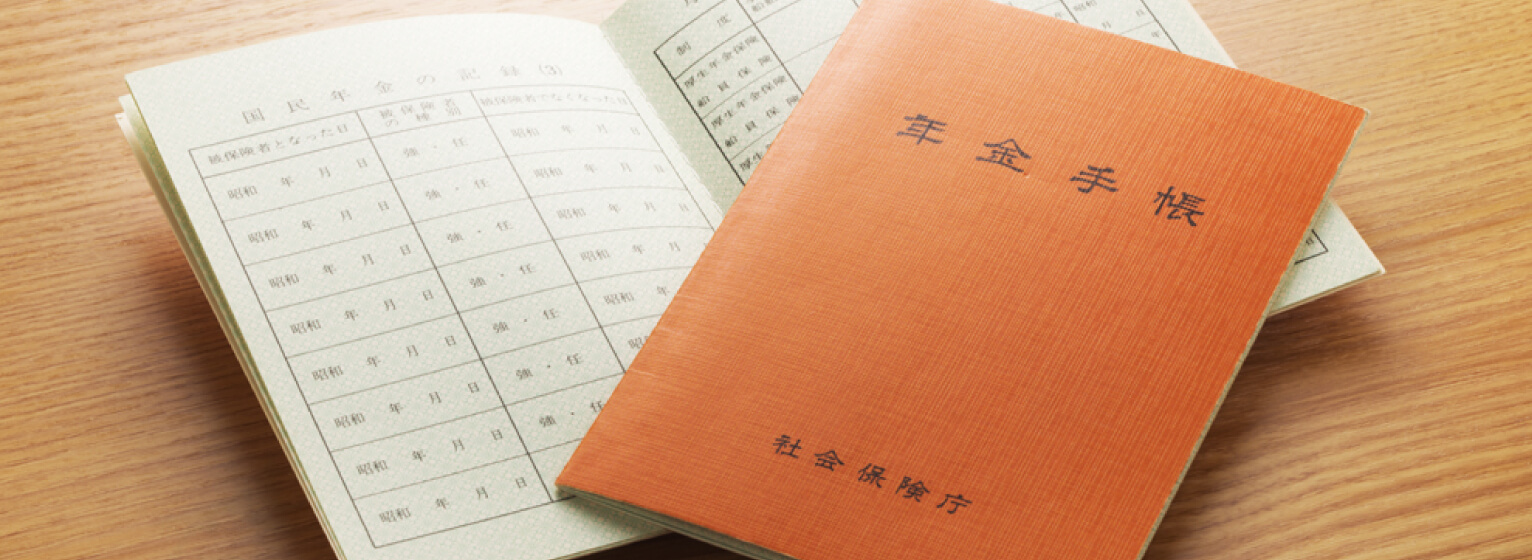 国民年金の記録(3)
被保険者となった日 被保険者の種別 被保険者でなくなった日
昭和 年 月 日 強・任 昭和 年 月 日
昭和 年 月 日 強・任 昭和 年 月 日
昭和 年 月 日 強・任 昭和 年 月 日
昭和 年 月 日 強・任 昭和 年 月
昭和 年 月 日 強・任 昭和 年
昭和 年 月 日 強・任
昭和 年 月 日 強・任
昭和 年 月 日
制度
厚生年金保険
船員保険
厚生年金保険
船員保険
年金手帳
社会保険庁